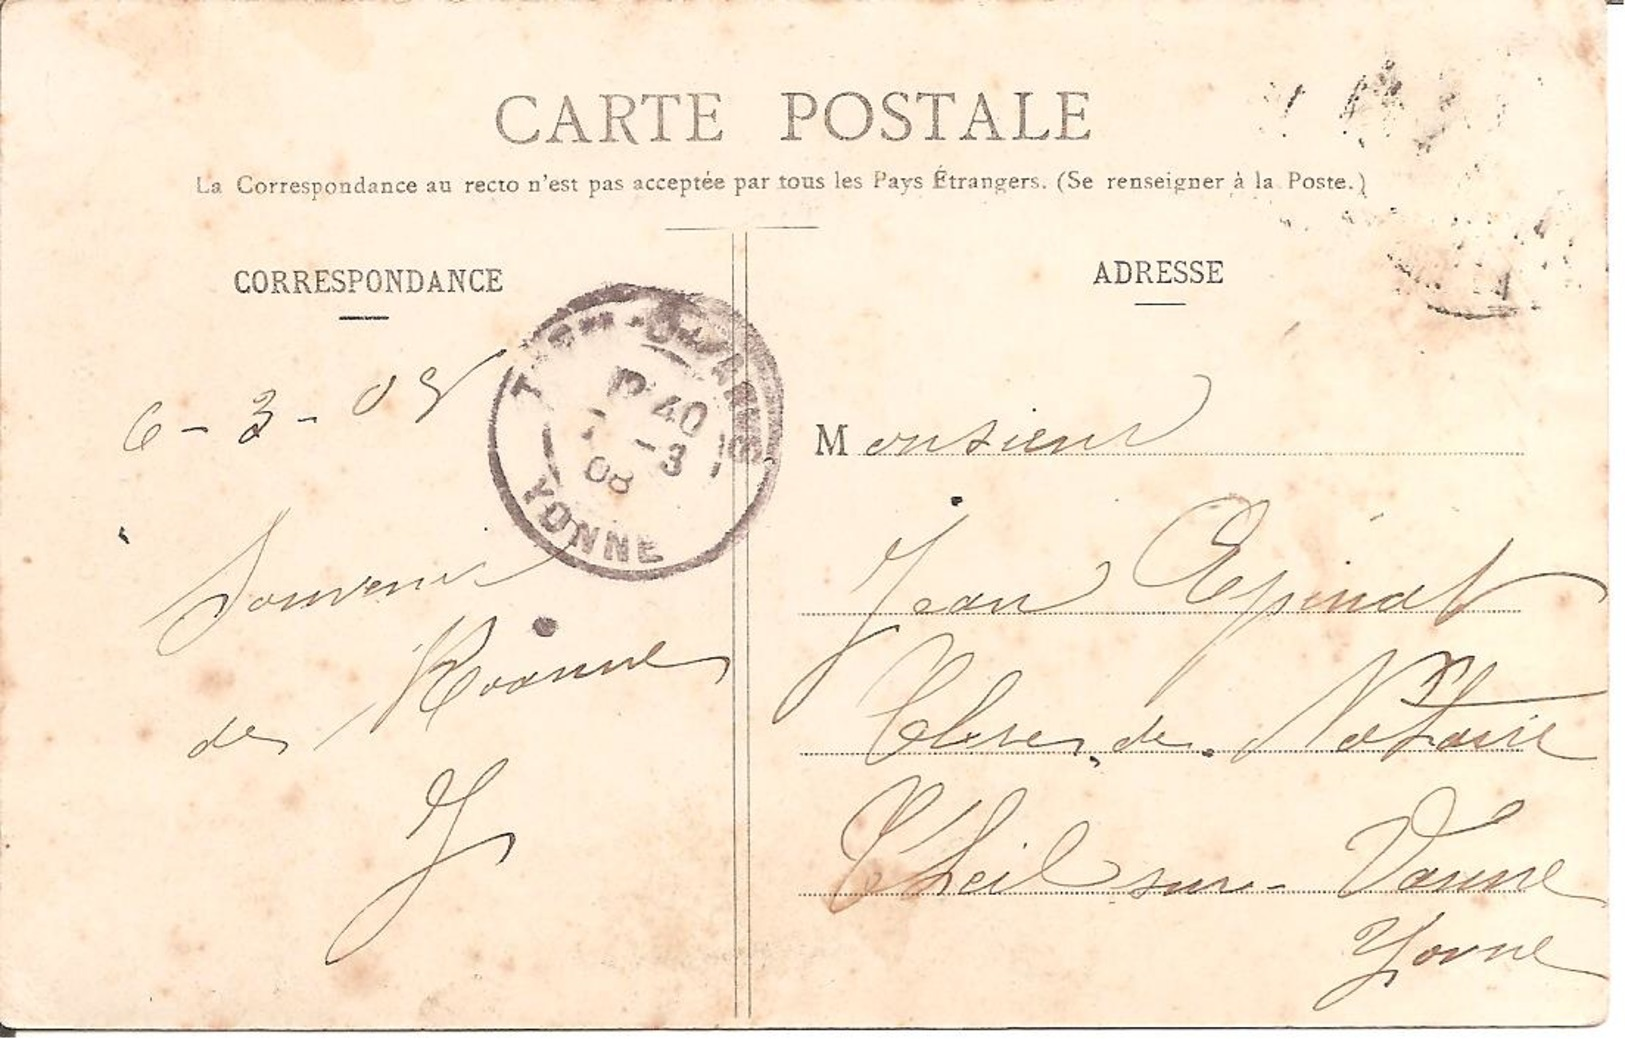 CARTE POSTALE
La Correspondance au recto n'est pas acceptée par tous les Pays Étrangers. (Se renseigner à la Poste.)
CORRESPONDANCE
6-3-08
Souvenir
de Roanne
J
40
-3
08
YONNE
ADRESSE
Monsieur
Jean Epinat
Clerc de Notaire
Theil sur-Vanne
Yonne